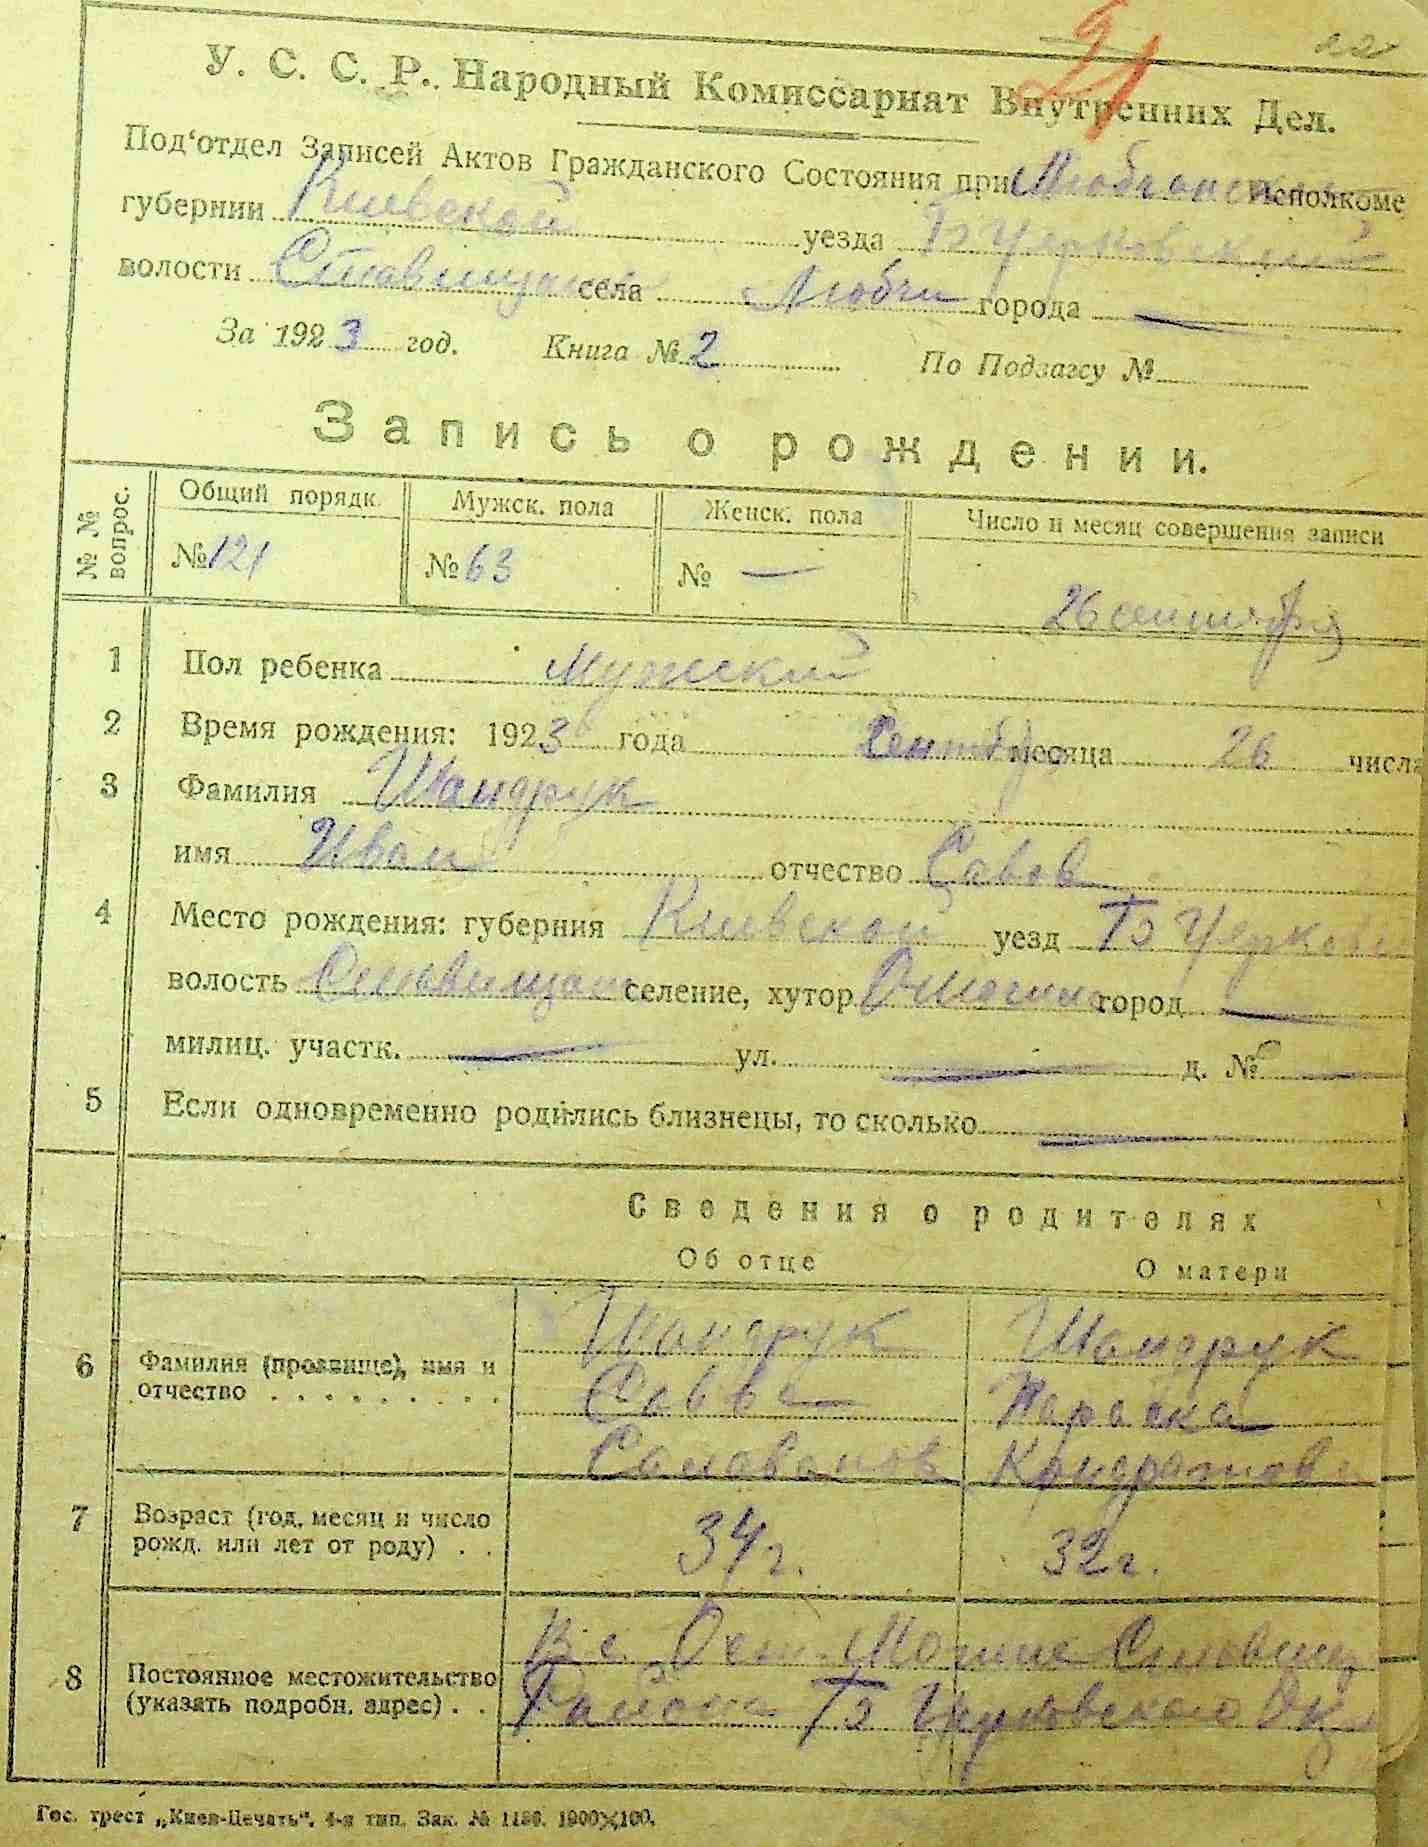 21 22
У. С. С. Р. Народный Комиссариат Внутренних Дел.
Под'отдел Записей Актов Гражданского Состояния при Исполкоме
губернии Киевской уезда Б Церковский
волости села Любчи города —
За 1923 год. Книга № 2 По Подзагсу №
Запись о рождении.
№ № вопрос. Общий порядк. Мужск. пола Женск. пола Число и месяц совершения записи
№ 121 № 63 № — 26 сентября
1 Пол ребенка Мужский
2 Время рождения: 1923 года Сентября месяца 26 числа
3 Фамилия Шандрук
имя Иван отчество Савов
4 Место рождения: губерния Киевской уезд Б Церковс
волость Ставищан селение, хутор город —
милиц. участк. — ул. — д. № —
5 Если одновременно родились близнецы, то сколько —
Сведения о родителях
Об отце О матери
6 Фамилия (прозвище), имя и отчество . . . . . . . . . Шандрук Шандрук
Савва Параска
Кондратов
7 Возраст (год, месяц и число рожд. или лет от роду) . . 34 г. 32 г.
8 Постоянное местожительство (указать подробн. адрес) . . В с. Ост. Могиле Ставищ
Района Б Церковского Окр
Гос. трест „Киев-Печать“. 4-я тип. Зак. № 1186. 1900×100.